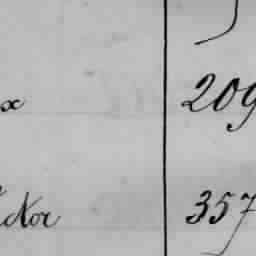 x 209
ctor 357